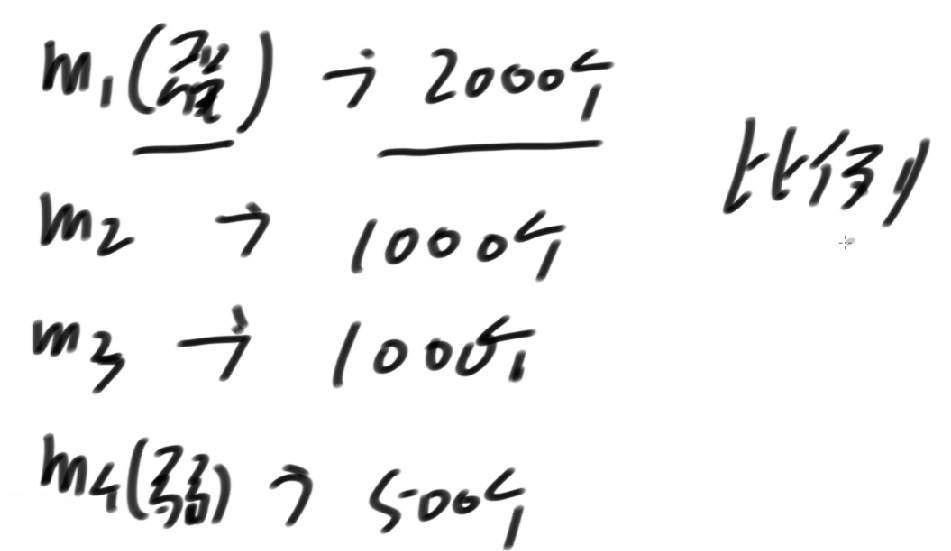 m1(强) → 2000个
m2 → 1000个
m3 → 1000个
m4(弱) → 500个
比例